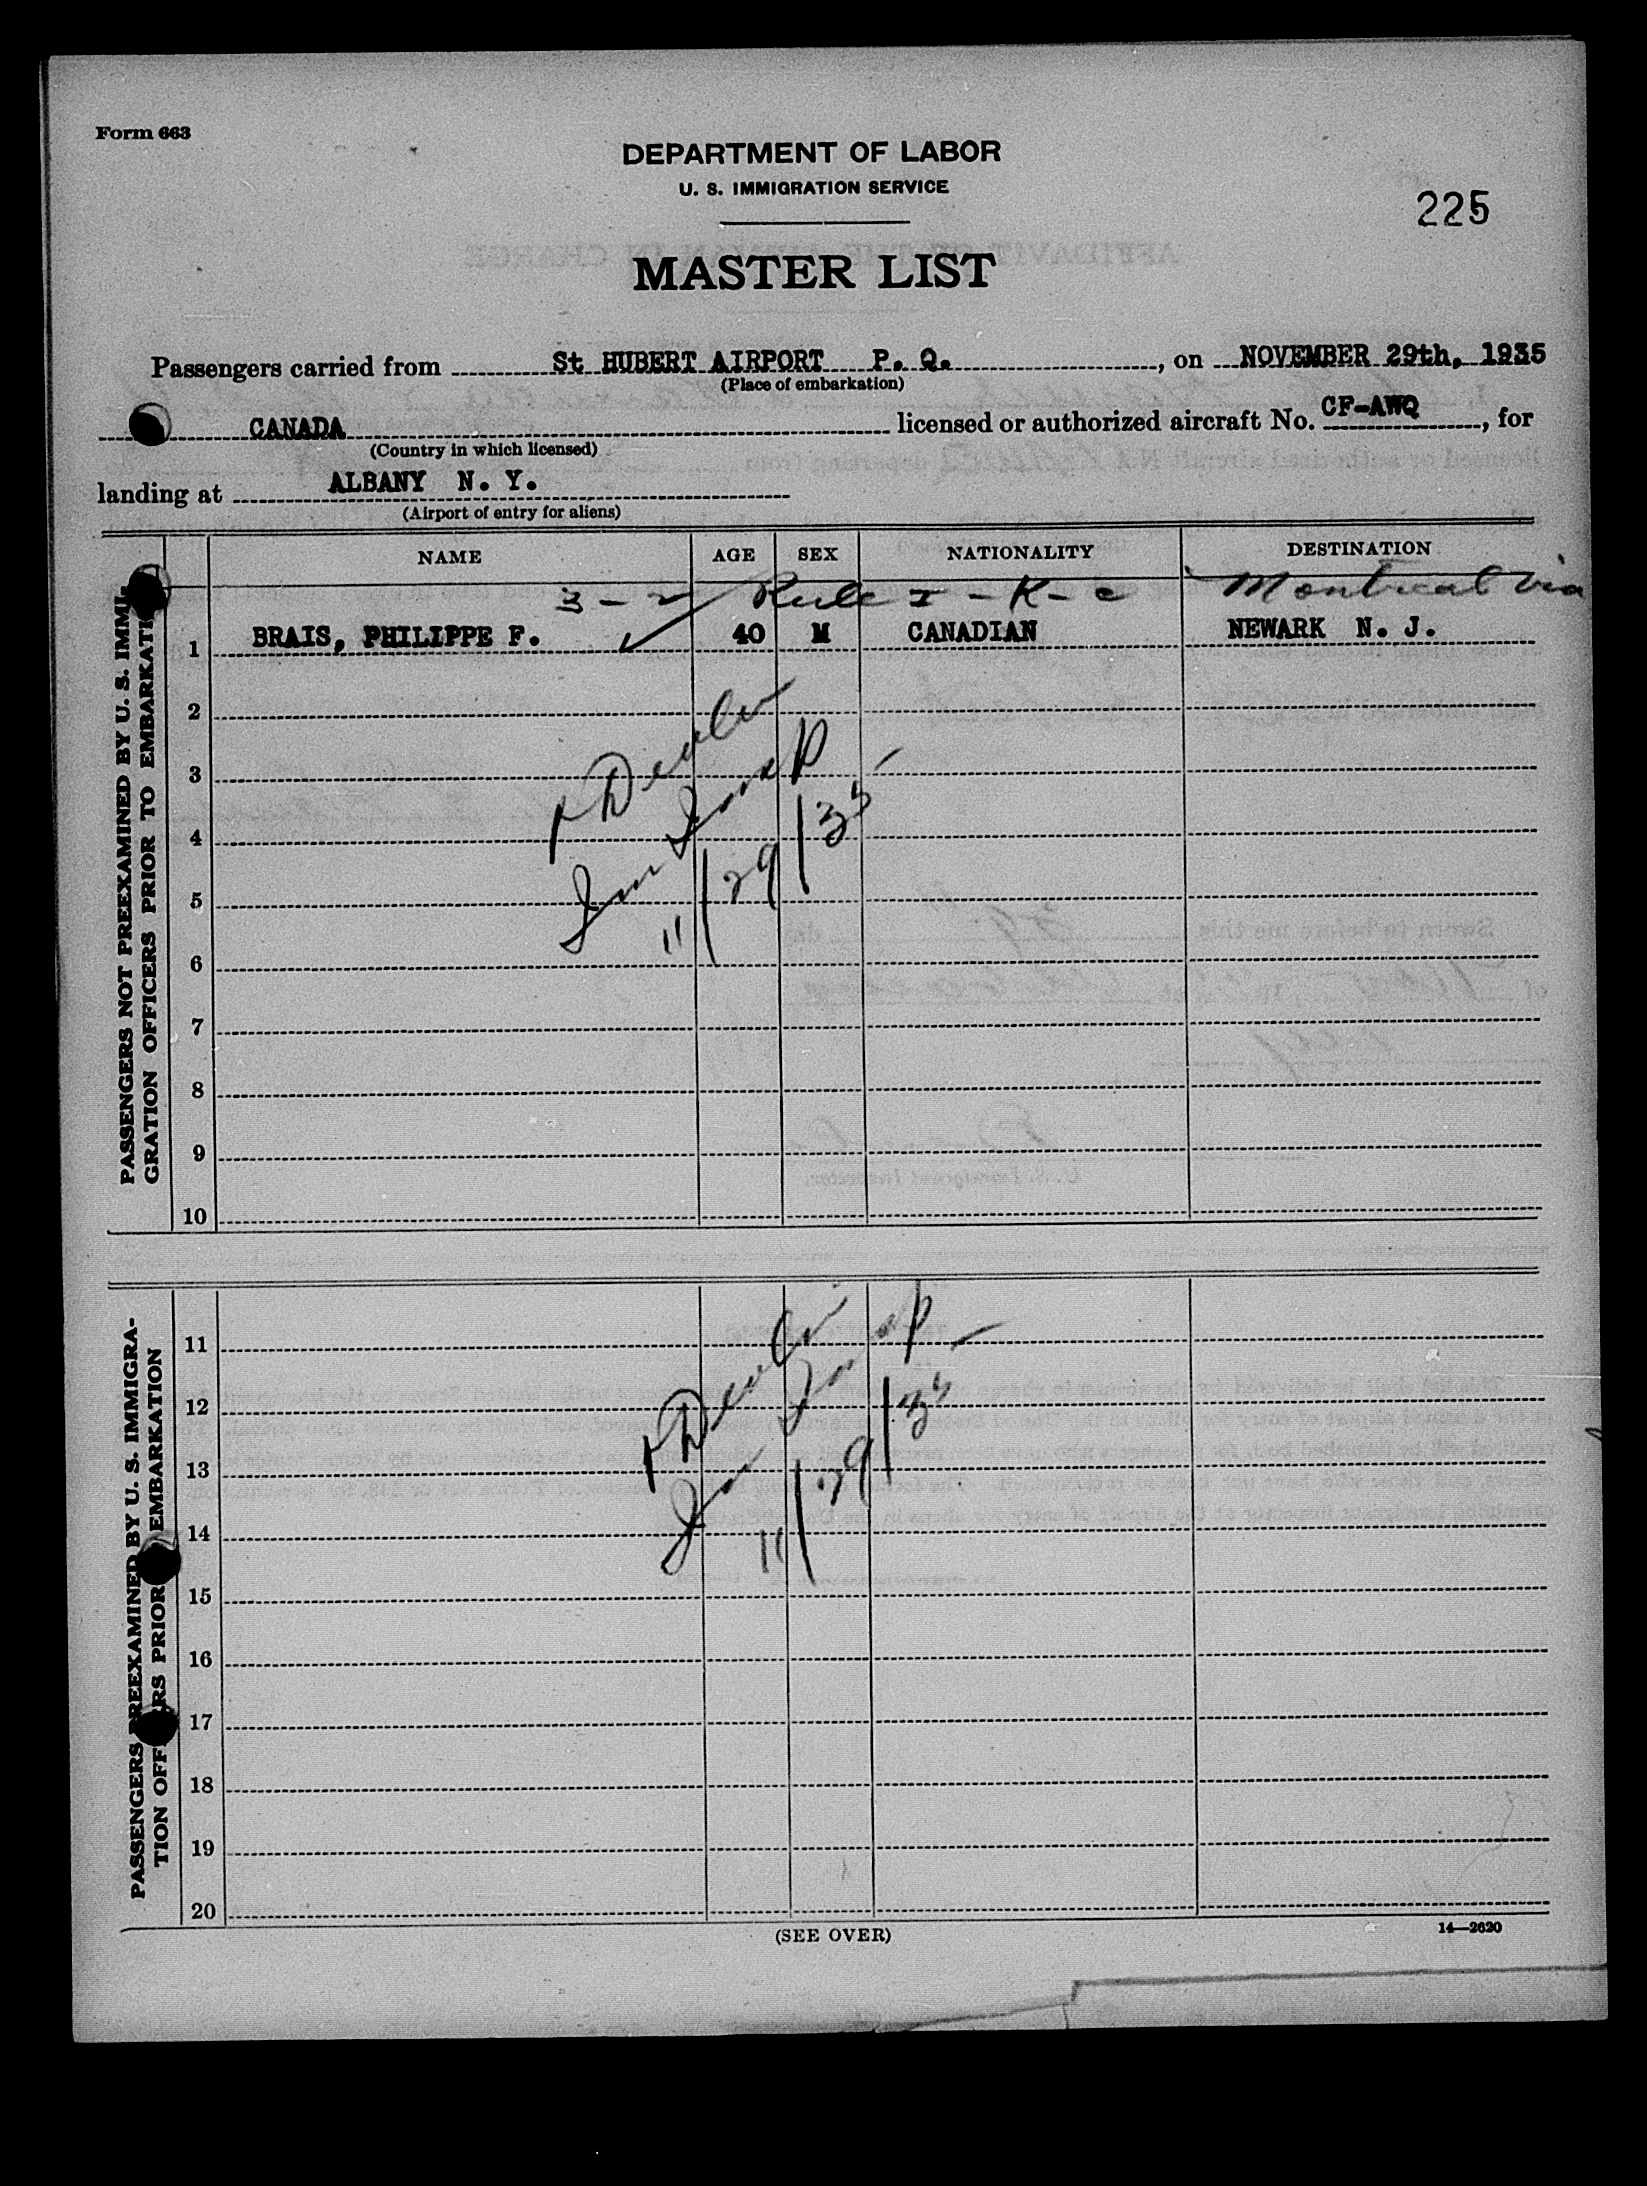 Form 663
DEPARTMENT OF LABOR
U. S. IMMIGRATION SERVICE
225
MASTER LIST
Passengers carried from St HUBERT AIRPORT P. Q., on NOVEMBER 29th, 1935
(Place of embarkation)
CANADA licensed or authorized aircraft No. CF-AWQ, for
(Country in which licensed)
landing at ALBANY N. Y.
(Airport of entry for aliens)
NAME AGE SEX NATIONALITY DESTINATION
3 - 2 Rule I - K - c Montreal via
1 BRAIS, PHILIPPE F. 40 M CANADIAN NEWARK N. J.
2
3
4
5
6
7
8
9
10
Imm Insp
11/29/35
PASSENGERS NOT PREEXAMINED BY U. S. IMMI-
GRATION OFFICERS PRIOR TO EMBARKATI
11
12
13
14
15
16
17
18
19
20
Imm Insp
11/29/35
PASSENGERS PREEXAMINED BY U. S. IMMIGRA-
TION OFF RS PRIOR EMBARKATION
(SEE OVER)
14—2620